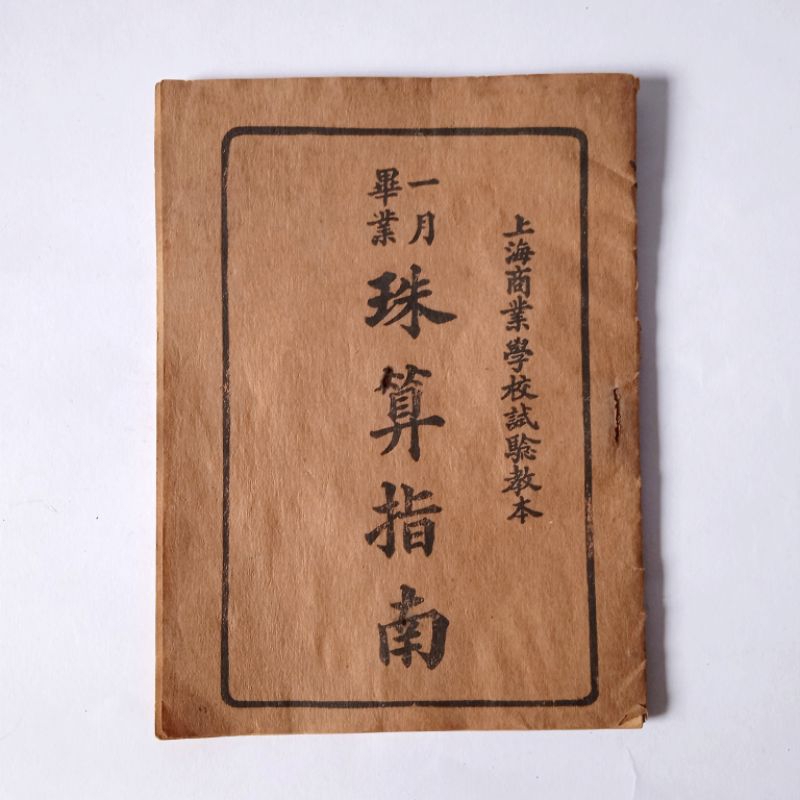 上海商業學校試驗教本
一月
畢業
珠算指南